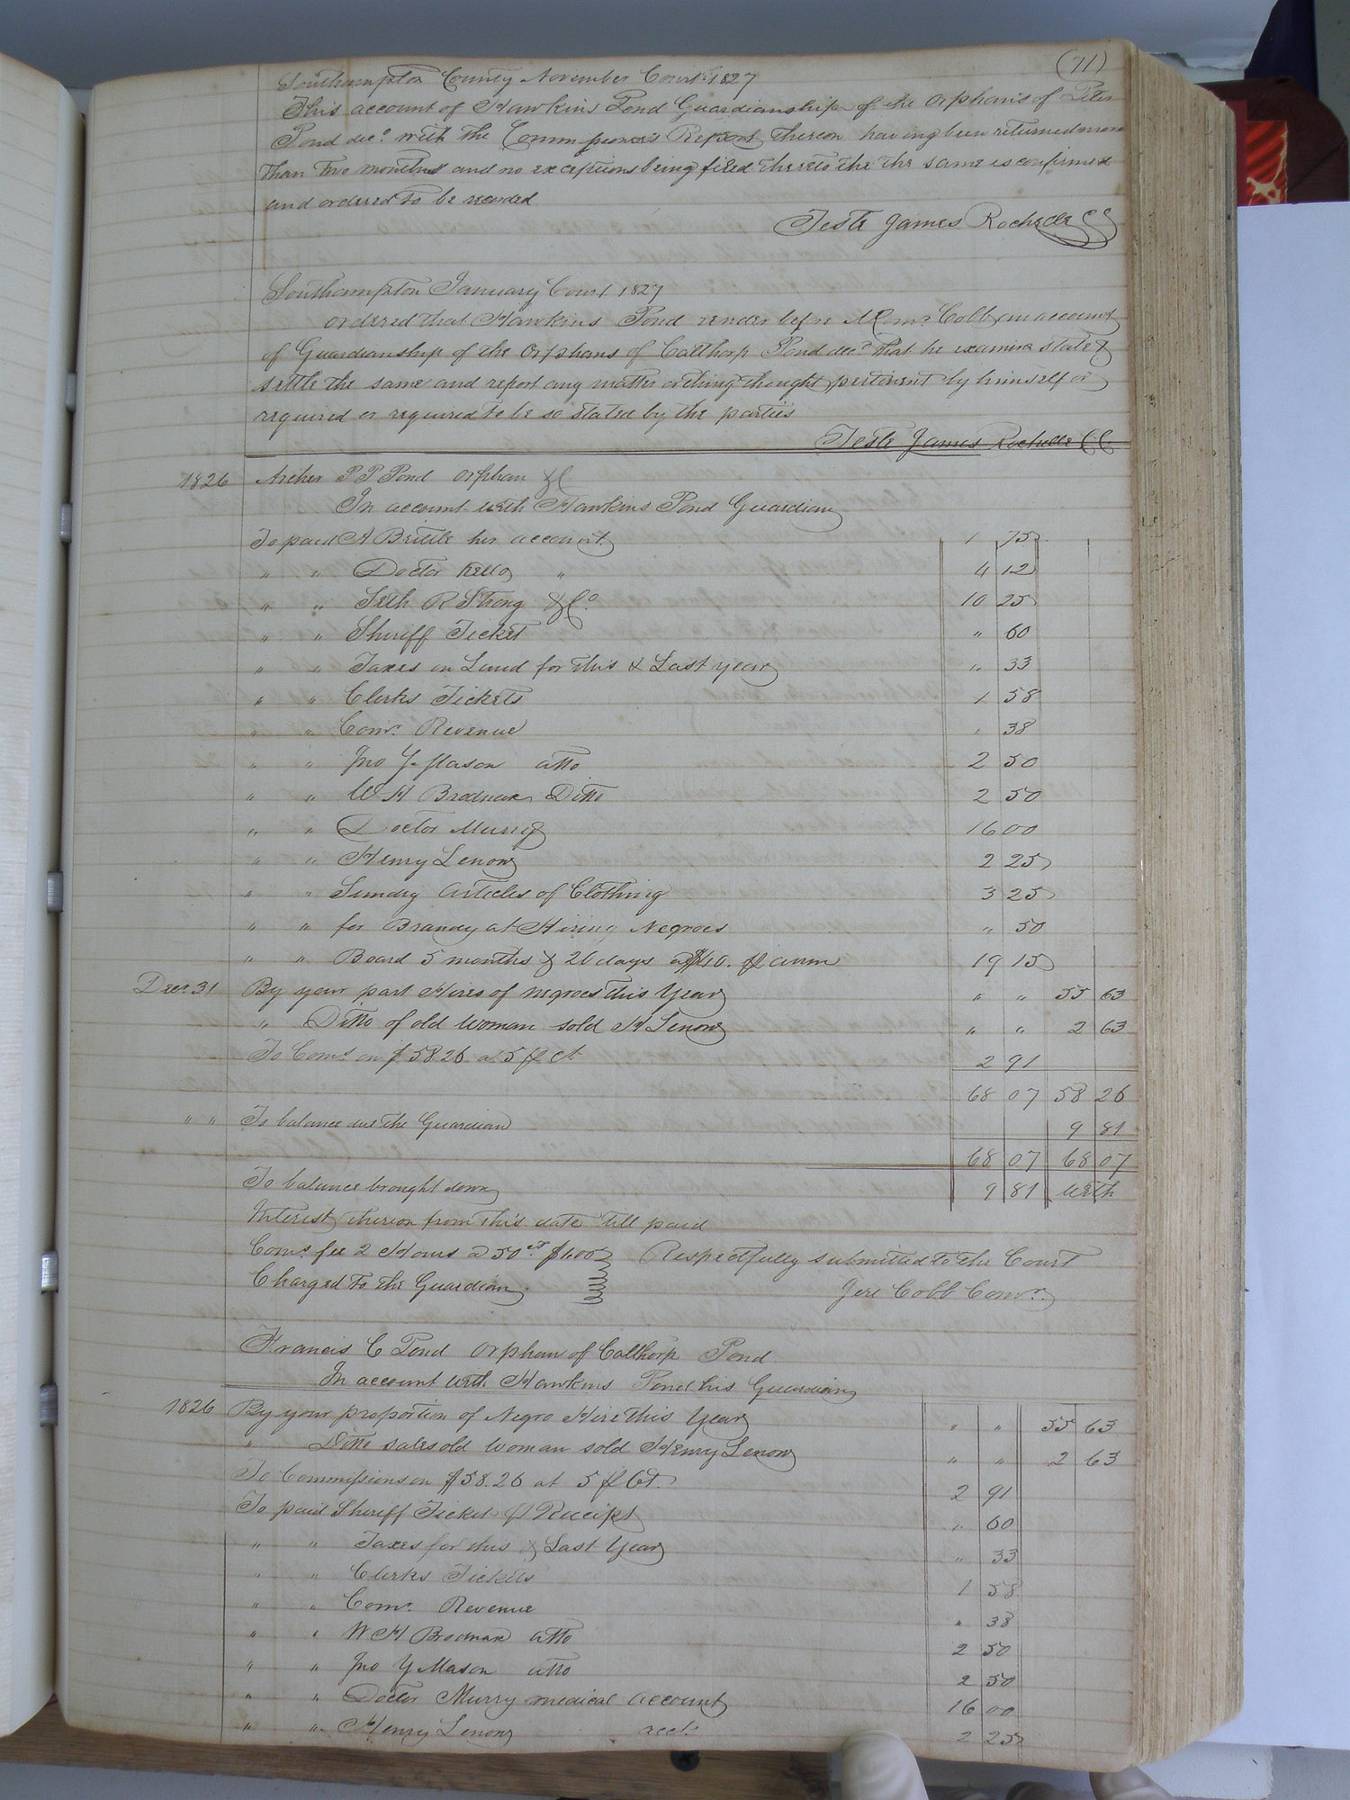 (71)
Southampton County November Court 1827
This account of Hawkins Pond Guardianship of the Orphans of Peter
Pond decd. with the Commissioners Report thereon having been returned more
than two months and no exceptions being filed thereto the the same is confirmed
and ordered to be recorded
Teste James Rochelle CC
Southampton January Court 1827
Ordered that Hawkins Pond render before Comr. Cobb an account
of Guardianship of the Orphans of Calthorp Pond decd. that he examine state &
settle the same and report any matter or thing thought pertinent by himself or
required or required to be so stated by the parties
Teste James Rochelle CC
1826 Archer P P Pond orphan &C
In account with Hawkins Pond Guardian
To paid A Brittle her account 1 75
" " Doctor Kello " 4 12
" " Seth R Strong & Co. 10 25
" " Sheriff Ticket " 60
" " Taxes on Land for this & Last year " 33
" " Clerks Tickets 1 58
" " Comr. Revenue " 38
" " Jno Y Mason atto 2 50
" " W H Brodnax Ditto 2 50
" " Doctor Murry 16 00
" " Henry Lenow 2 25
" " Sundry Articles of Clothing 3 25
" " for Brandy at Hiring Negroes " 50
" " Board 5 months & 20 days at $40. p anum 19 15
Decr 31 By your part Hires of negroes this Year " " 55 63
" Ditto of old woman sold H Lenow " " 2 63
To Coms. on $58.26 a 5 p ct 2 91
68 07 58 26
" " To balance due the Guardian 9 81
68 07 68 07
To balance brought down 9 81 with
Interest thereon from this date till paid
Coms. fee 2 Hours a 50 cts $1.00 Respectfully submitted to the Court
Charged to the Guardian. Jere Cobb Comr.
Francis C Pond orphan of Calthorp Pond
In account with Hawkins Pond his Guardian
1826 By your proportion of Negro Hire this Year " " 55 63
" Ditto sales old woman sold Henry Lenow " " 2 63
To Commissions on $58.26 at 5 p Ct. 2 91
To paid Sheriff Ticket p Receipt " 60
" " Taxes for this & Last Year " 33
" " Clerks Tickets 1 58
" " Comr. Revenue " 38
" " W H Brodnax atto 2 50
" " Jno Y Mason atto 2 50
" " Doctor Murry medical account 16 00
" " Henry Lenow acct. 2 25